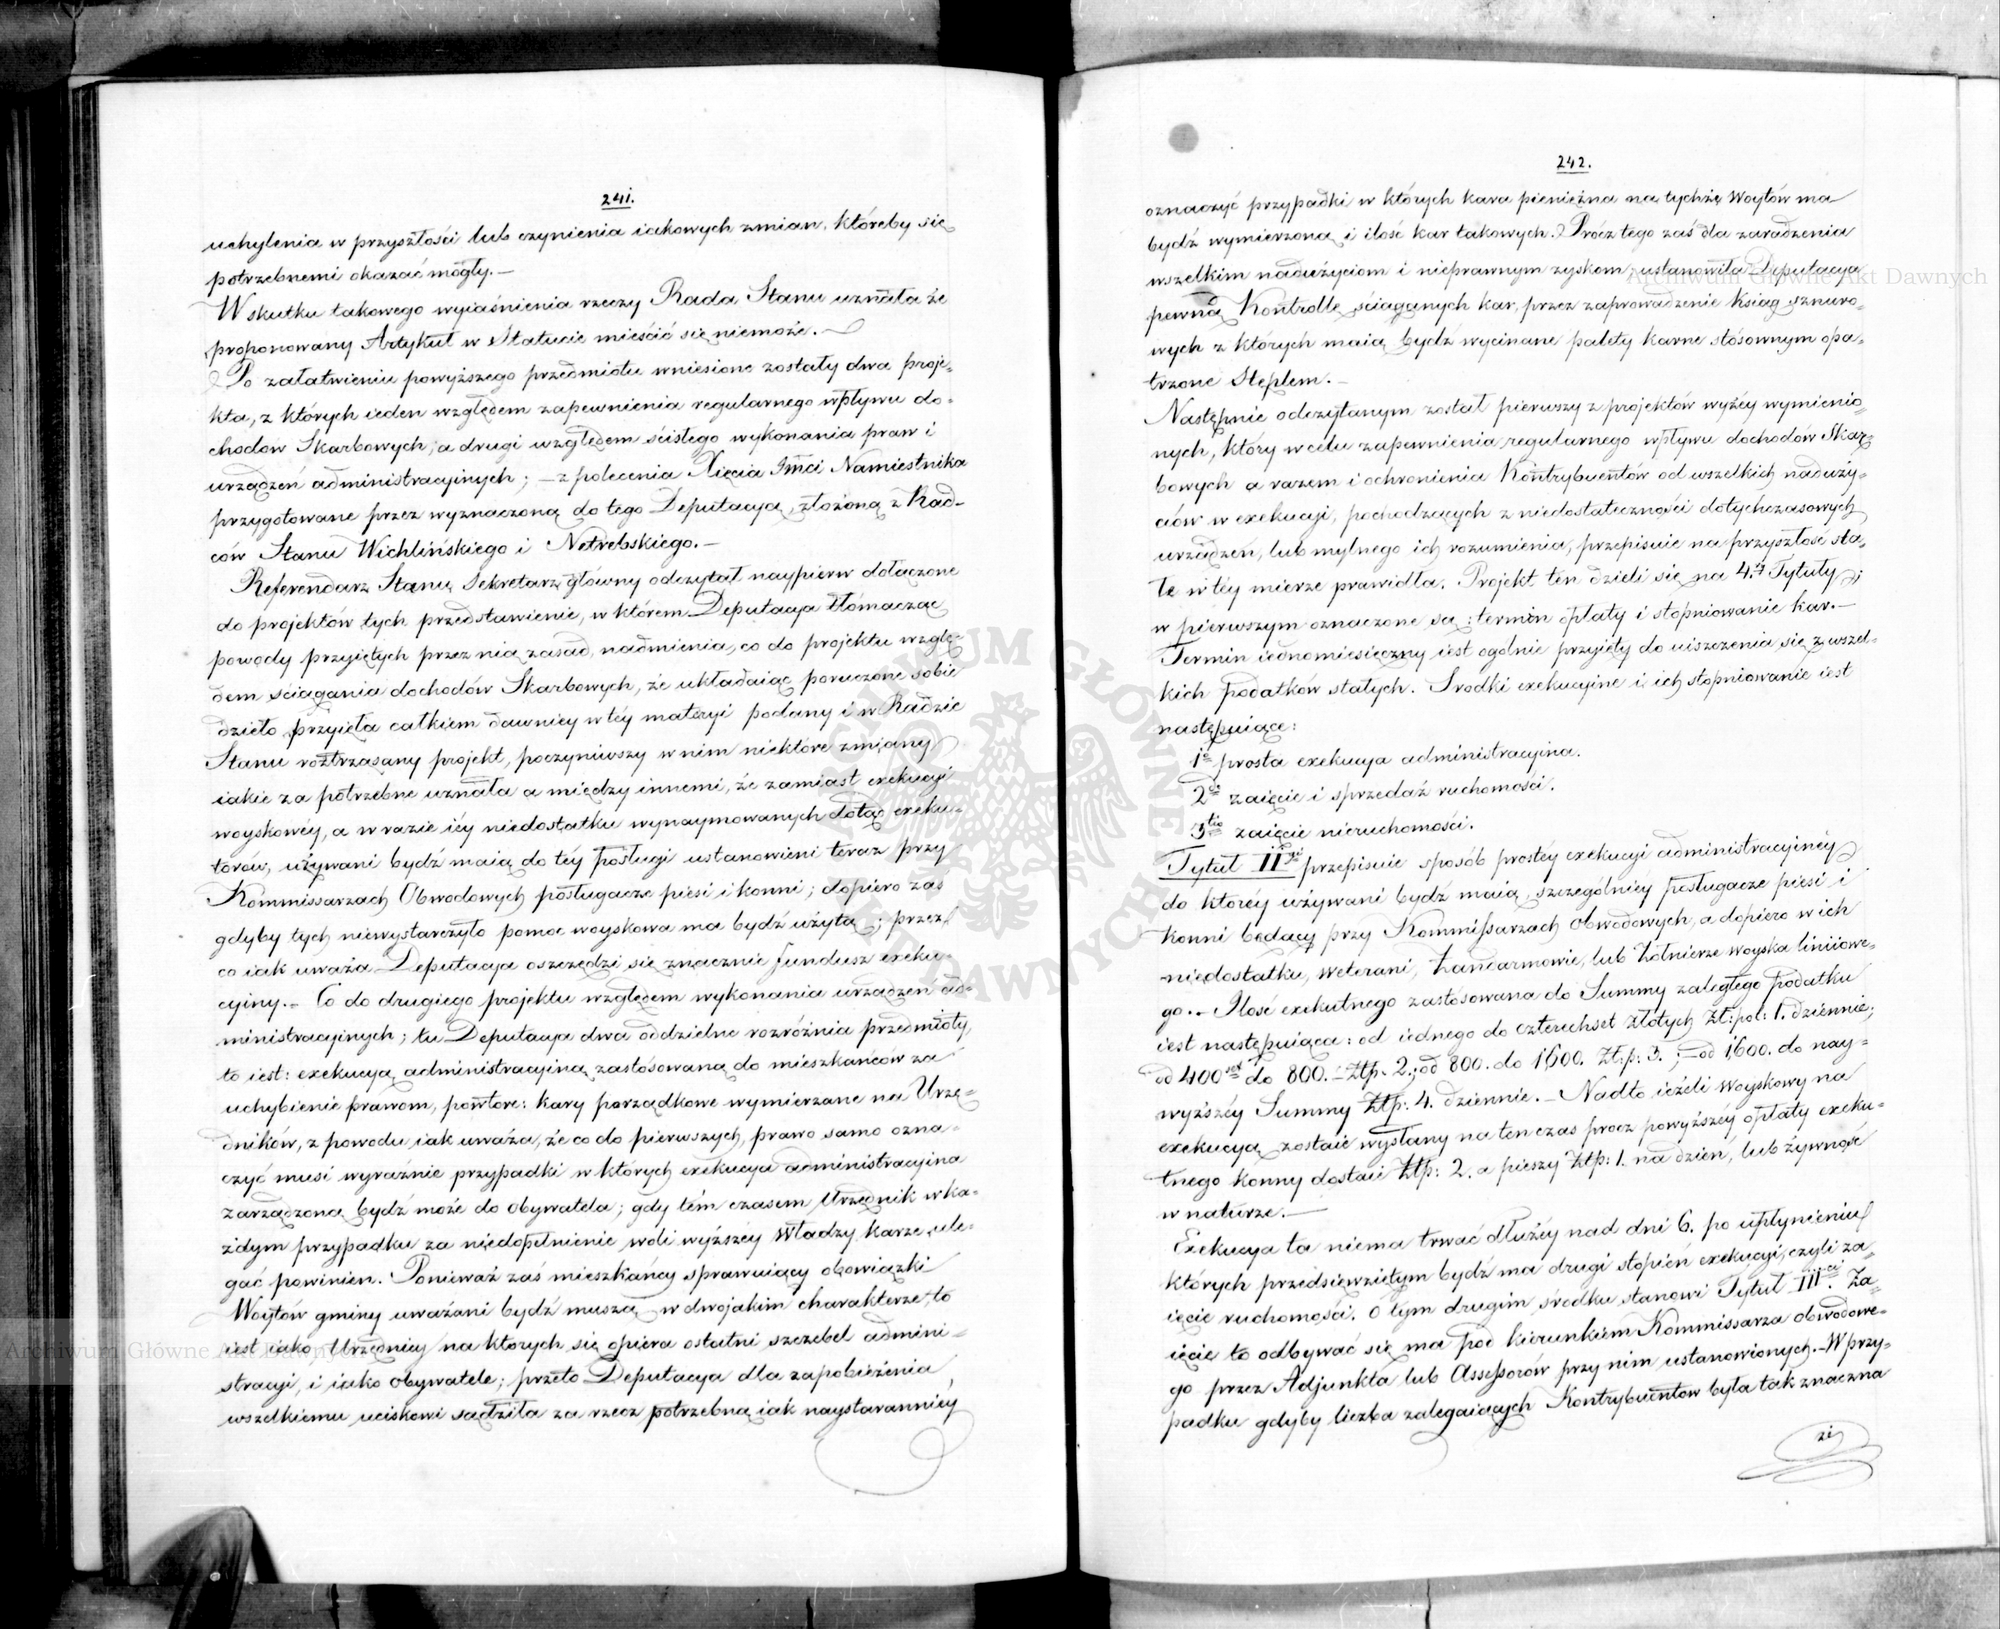 241.
uchylenia w przyszłości lub czynienia iakowych zmian, któreby się
potrzebnemi okazać mogły.—
W skutku takowego wyiaśnienia rzeczy Rada Stanu uznała że
proponowany Artykuł w Statucie mieścić się niemoże.—
Po załatwieniu powyższego przedmiotu wniesione zostały dwa proje-
kta, z których ieden względem zapewnienia regularnego wpływu do-
chodów Skarbowych, a drugi względem ścisłego wykonania praw i
urządzeń administracyinych; — z polecenia Xięcia Jmci Namiestnika
przygotowane przez wyznaczoną do tego Deputacyą, złożoną z Rad-
ców Stanu Wichlińskiego i Netrebskiego.—
Referendarz Stanu Sekretarz główny odczytał naypierw dołączone
do projektów tych przedstawienie, w którem Deputacya tłómacząc
powody przyiętych przez nią zasad, nadmienia, co do projektu wzglę-
dem ściągania dochodów Skarbowych, że układaiąc poruczone sobie
dzieło przyięła całkiem dawniey w téy materyi podany i w Radzie
Stanu roztrząsany projekt, poczyniwszy w nim niektóre zmiany
iakie za potrzebne uznała a między innemi, że zamiast exekucyi
woyskowéy, a w razie iéy niedostatku wynaymowanych dotąd exeku-
torów, używani bydź maią do téy posługi ustanowieni teraz przy
Kommissarzach Obwodowych posługacze piesi i konni; dopiero zaś
gdyby tych niewystarczyło pomoc woyskowa ma bydź użytą; przez
co iak uważa Deputacya oszczędzi się znacznie fundusz exeku-
cyiny.— Co do drugiego projektu względem wykonania urządzeń ad-
ministracyinych; tu Deputacya dwa oddzielne rozróżnia przedmioty,
to iest: exekucyą administracyiną zastósowaną do mieszkańców za
uchybienie prawom, powtóre: kary porządkowe wymierzane na Urzę-
dników, z powodu, iak uważa, że co do pierwszych, prawo samo ozna-
czyć musi wyraznie przypadki w których exekucya administracyina
zarządzoną bydź może do obywatela; gdy tém czasem Urzędnik w ka-
żdym przypadku za niedopełnienie woli wyższéy Władzy karze ule-
gać powinien. Ponieważ zaś mieszkańcy sprawuiący obowiązki
Woytów gminy uważani bydź muszą w dwojakim charakterze, to
iest iako Urzędnicy na ktorych się opiera ostatni szczebel admini-
stracyi, i iako obywatele; przeto Deputacya dla zapobieżenia
wszelkiemu uciskowi sądziła za rzecz potrzebną iak naystaranniey
242.
oznaczyć przypadki w których kara pieniężna na tychże Woytów ma
bydź wymierzoną i ilość kar takowych. Prócz tego zaś dla zaradzenia
wszelkim nadużyciom i nieprawnym zyskom, ustanowiła Deputacya
pewną Kontrollę ściąganych kar, przez zaprowadzenie ksiąg sznuro-
wych z których maią bydź wycinane palety karne stósownym opa-
trzone Stęplem.—
Następnie odczytanym został pierwszy z projektów wyżéy wymienio-
nych, który w celu zapewnienia regularnego wpływu dochodów Skar-
bowych a razem i ochronienia Kontrybuentów od wszelkich naduży-
ciów w exekucyi, pochodzących z niedostateczności dotychczasowych
urządzeń, lub mylnego ich rozumienia, przepisuie na przyszłość sta-
łe w téy mierze prawidła. Projekt ten dzieli się na 4.ry Tytuły;
w pierwszym oznaczone są: termin opłaty i stopniowanie kar.—
Termin iednomiesięczny iest ogólnie przyięty do uiszczenia się z wszel-
kich podatków stałych. Srodki exekucyine i ich stopniowanie iest
następuiące:
1o prosta exekucya administracyina.
2do zaięcie i sprzedaż ruchomości.
3tio zaięcie nieruchomości.
Tytuł IIgi przepisuie sposób prostéy exekucyi administracyinéy
do któréy używani bydź maią szczególniey posługacze piesi i
konni będący przy Kommissarzach obwodowych, a dopiero w ich
niedostatku, Weterani, Żandarmowie, lub Żołnierze woyska liniiowe-
go.— Ilość exekutnego zastósowana do Summy zaległego podatku
iest następuiąca: od iednego do czterechset złotych Zł: pol: 1. dziennie;
od 400set do 800.— Złp. 2.; od 800. do 1600. Zł: p: 3.; — od 1600. do nay-
wyższéy Summy Złp: 4. dziennie.— Nadto ieżeli Woyskowy na
exekucyą zostaie wysłany na ten czas procz powyższéy opłaty exeku-
tnego konny dostaie Złp: 2. a pieszy Złp: 1. na dzień, lub żywność
w naturze.—
Exekucya ta niema trwać dłużéy nad dni 6. po upłynieniu
których przedsięwziętym bydź ma drugi stopień exekucyi, czyli za-
ięcie ruchomości. O tym drugim środku stanowi Tytuł IIIci. Za-
ięcie to odbywać się ma pod kierunkiem Kommissarza obwodowe-
go przez Adjunkta lub Assessorów przy nim ustanowionych.— W przy-
padku gdyby liczba zalegaiących Kontrybuentów była tak znaczna
ARCHIWUM GŁÓWNE AKT DAWNYCH
Archiwum Główne Akt Dawnych
Archiwum Główne Akt Dawnych